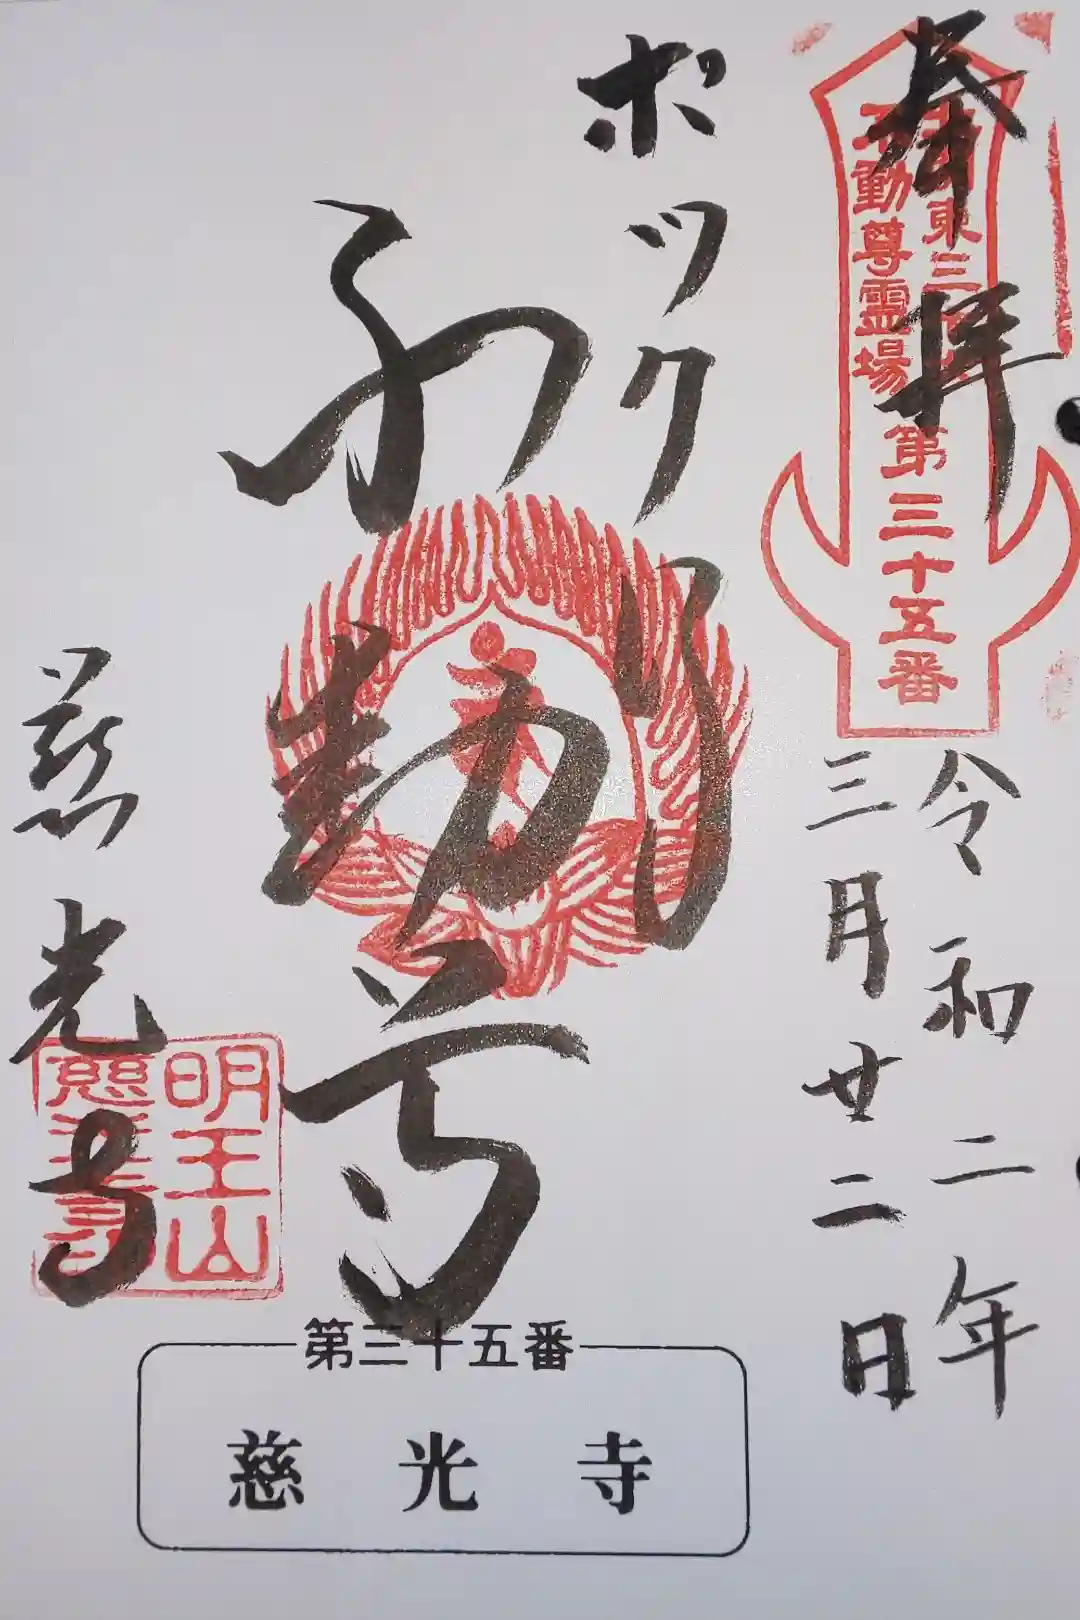 奉拝
東三十六
不動尊霊場
第三十五番
令和二年
三月廿二日
ポックリ
不動尊
慈光寺
明王山
第三十五番
慈光寺